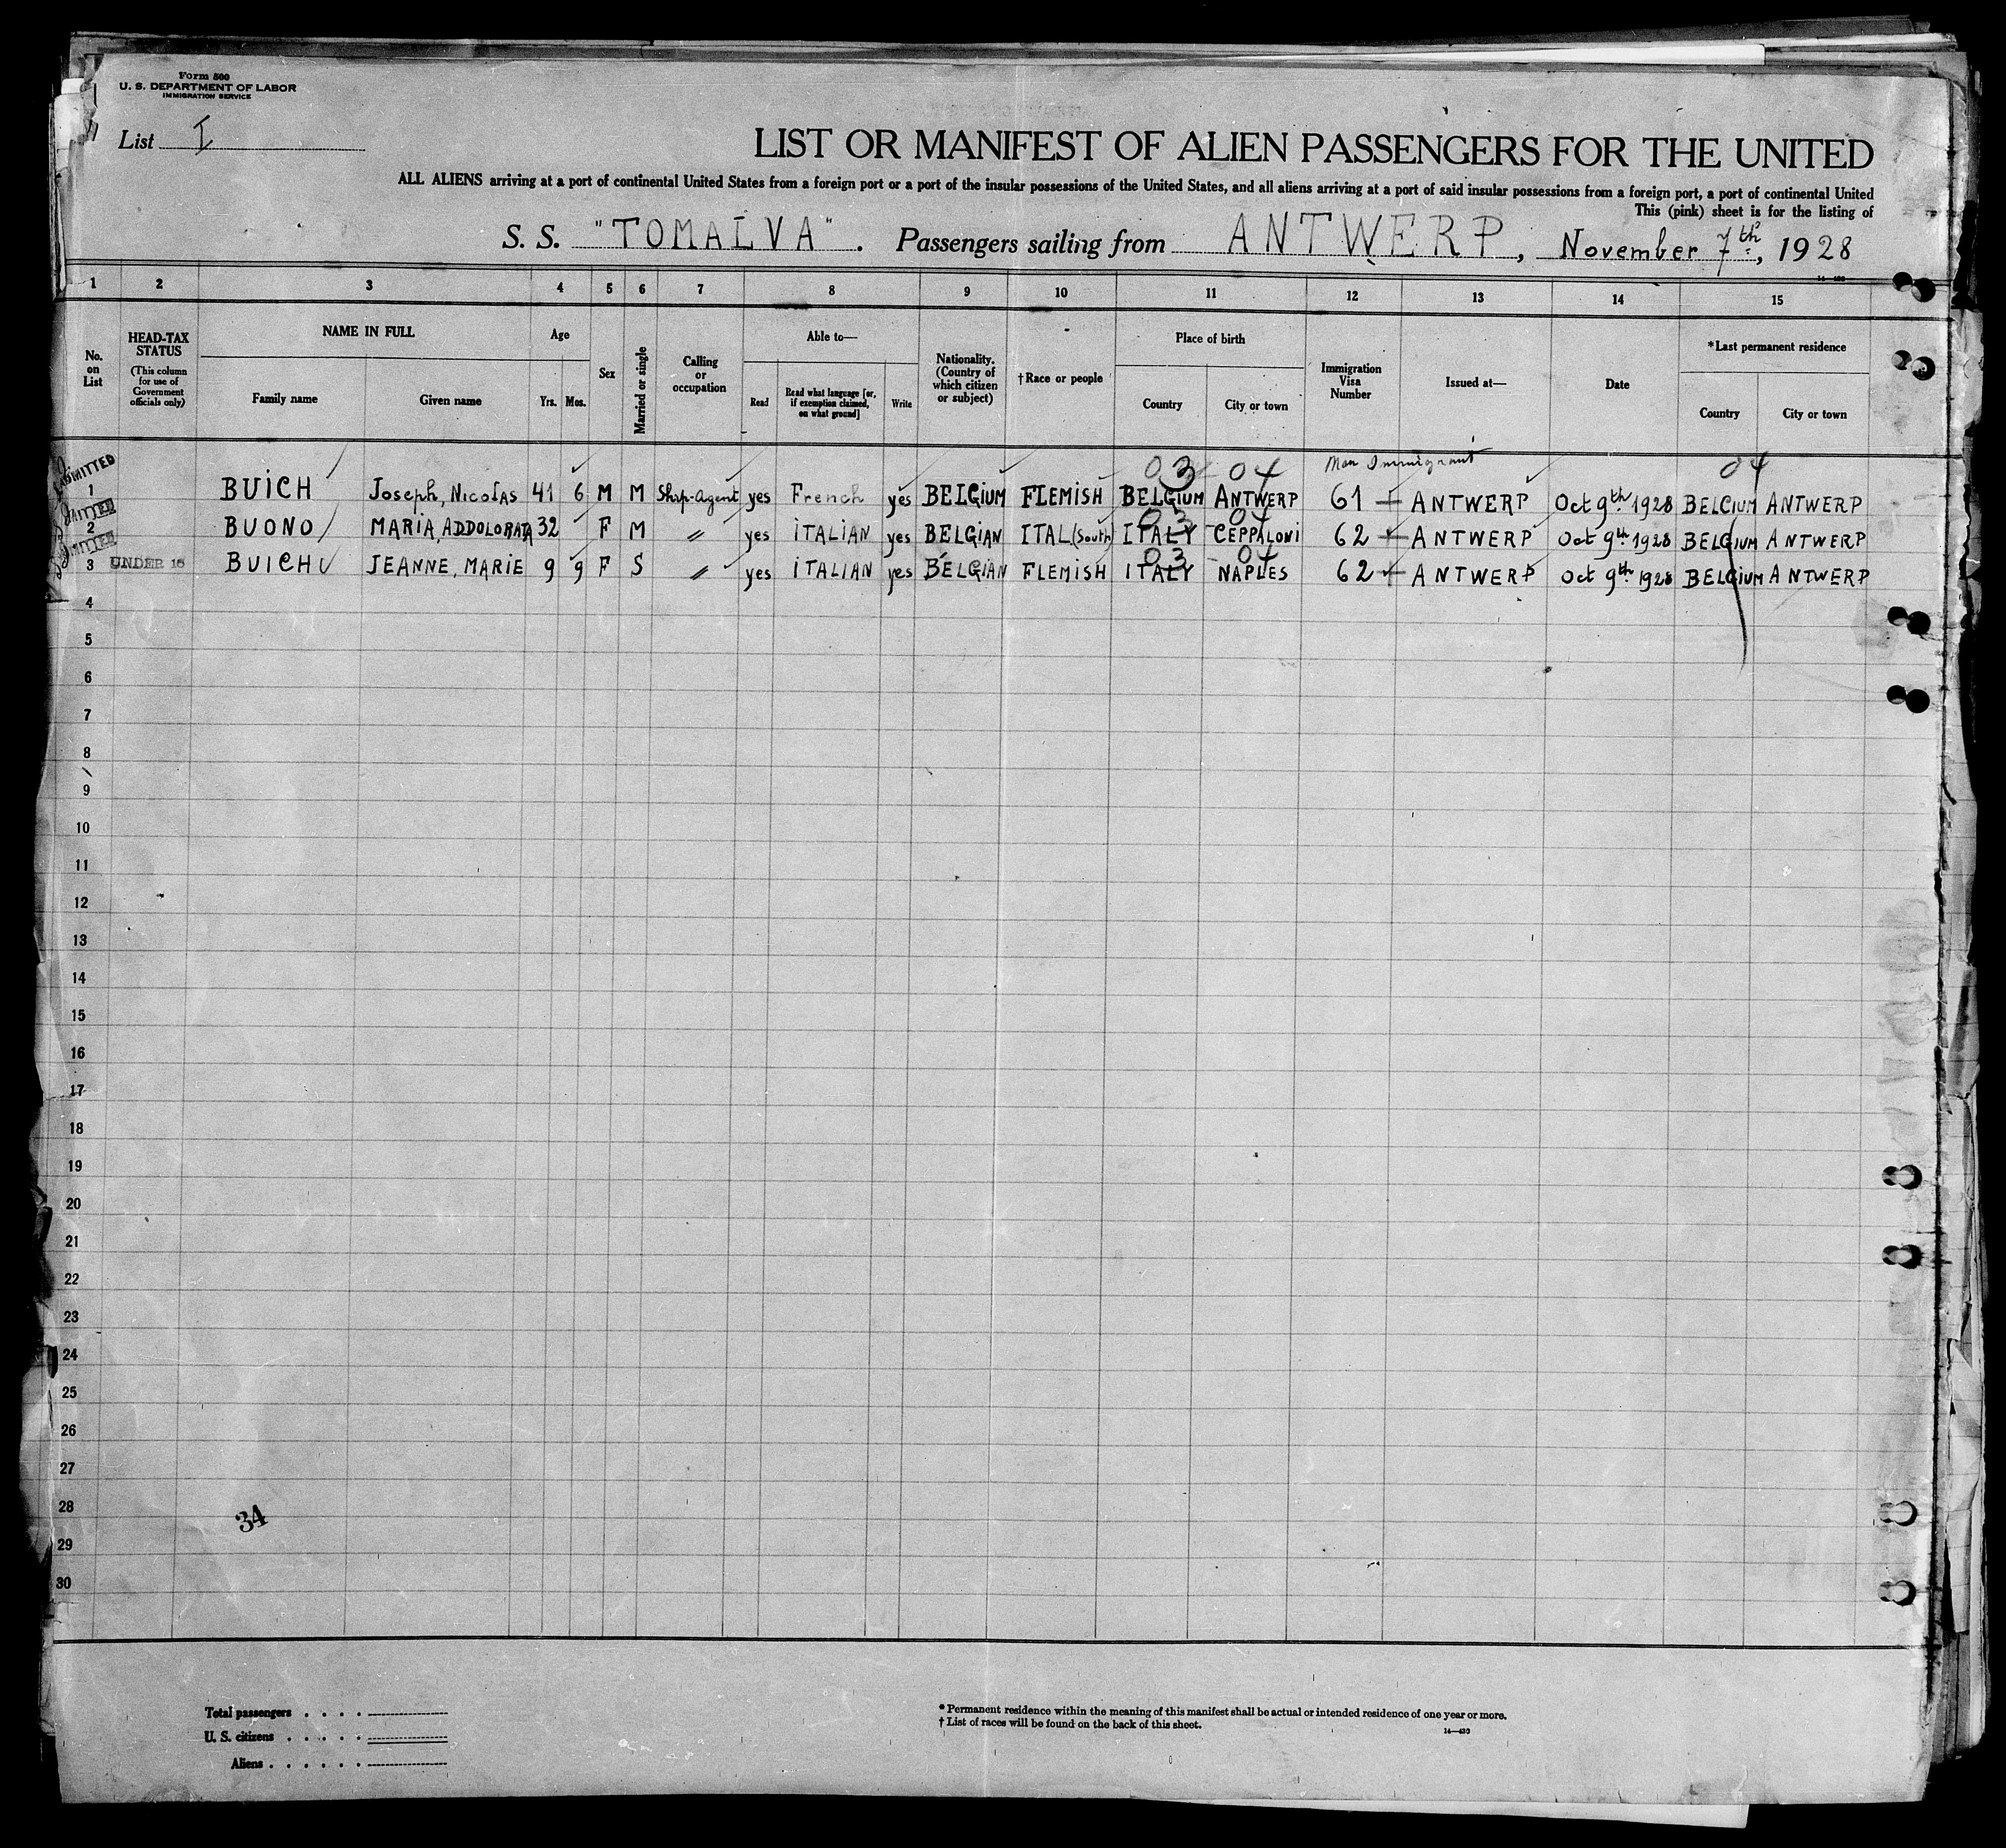 Form 500
U. S. DEPARTMENT OF LABOR
IMMIGRATION SERVICE
List I
LIST OR MANIFEST OF ALIEN PASSENGERS FOR THE UNITED
ALL ALIENS arriving at a port of continental United States from a foreign port or a port of the insular possessions of the United States, and all aliens arriving at a port of said insular possessions from a foreign port, a port of continental United
This (pink) sheet is for the listing of
S. S. "TOMALVA". Passengers sailing from ANTWERP, November 7th, 1928
1 2 3 4 5 6 7 8 9 10 11 12 13 14 15
No. on List
HEAD-TAX STATUS
(This column for use of Government officials only)
NAME IN FULL
Family name
Given name
Age
Yrs. Mos.
Sex
Married or single
Calling or occupation
Able to—
Read
Read what language [or, if exemption claimed, on what ground]
Write
Nationality. (Country of which citizen or subject)
†Race or people
Place of birth
Country
City or town
Immigration Visa Number
Issued at—
Date
*Last permanent residence
Country
City or town
ADMITTED 03 04 Non Immigrant 04
1 BUICH Joseph, Nicolas 41 6 M M Ship-Agent yes French yes BELGIUM FLEMISH BELGIUM ANTWERP 61 ANTWERP Oct 9th 1928 BELGIUM ANTWERP
03 04
2 BUONO MARIA, ADDOLORATA 32 F M " yes ITALIAN yes BELGIAN ITAL (South) ITALY CEPPALONI 62 ANTWERP Oct 9th 1928 BELGIUM ANTWERP
03 04
3 UNDER 16 BUICH JEANNE, MARIE 9 9 F S " yes ITALIAN yes BELGIAN FLEMISH ITALY NAPLES 62 ANTWERP Oct 9th 1928 BELGIUM ANTWERP
4
5
6
7
8
9
10
11
12
13
14
15
16
17
18
19
20
21
22
23
24
25
26
27
28
34
29
30
Total passengers . . . .
U. S. citizens . . . . .
Aliens . . . . . .
* Permanent residence within the meaning of this manifest shall be actual or intended residence of one year or more.
† List of races will be found on the back of this sheet.
14—430